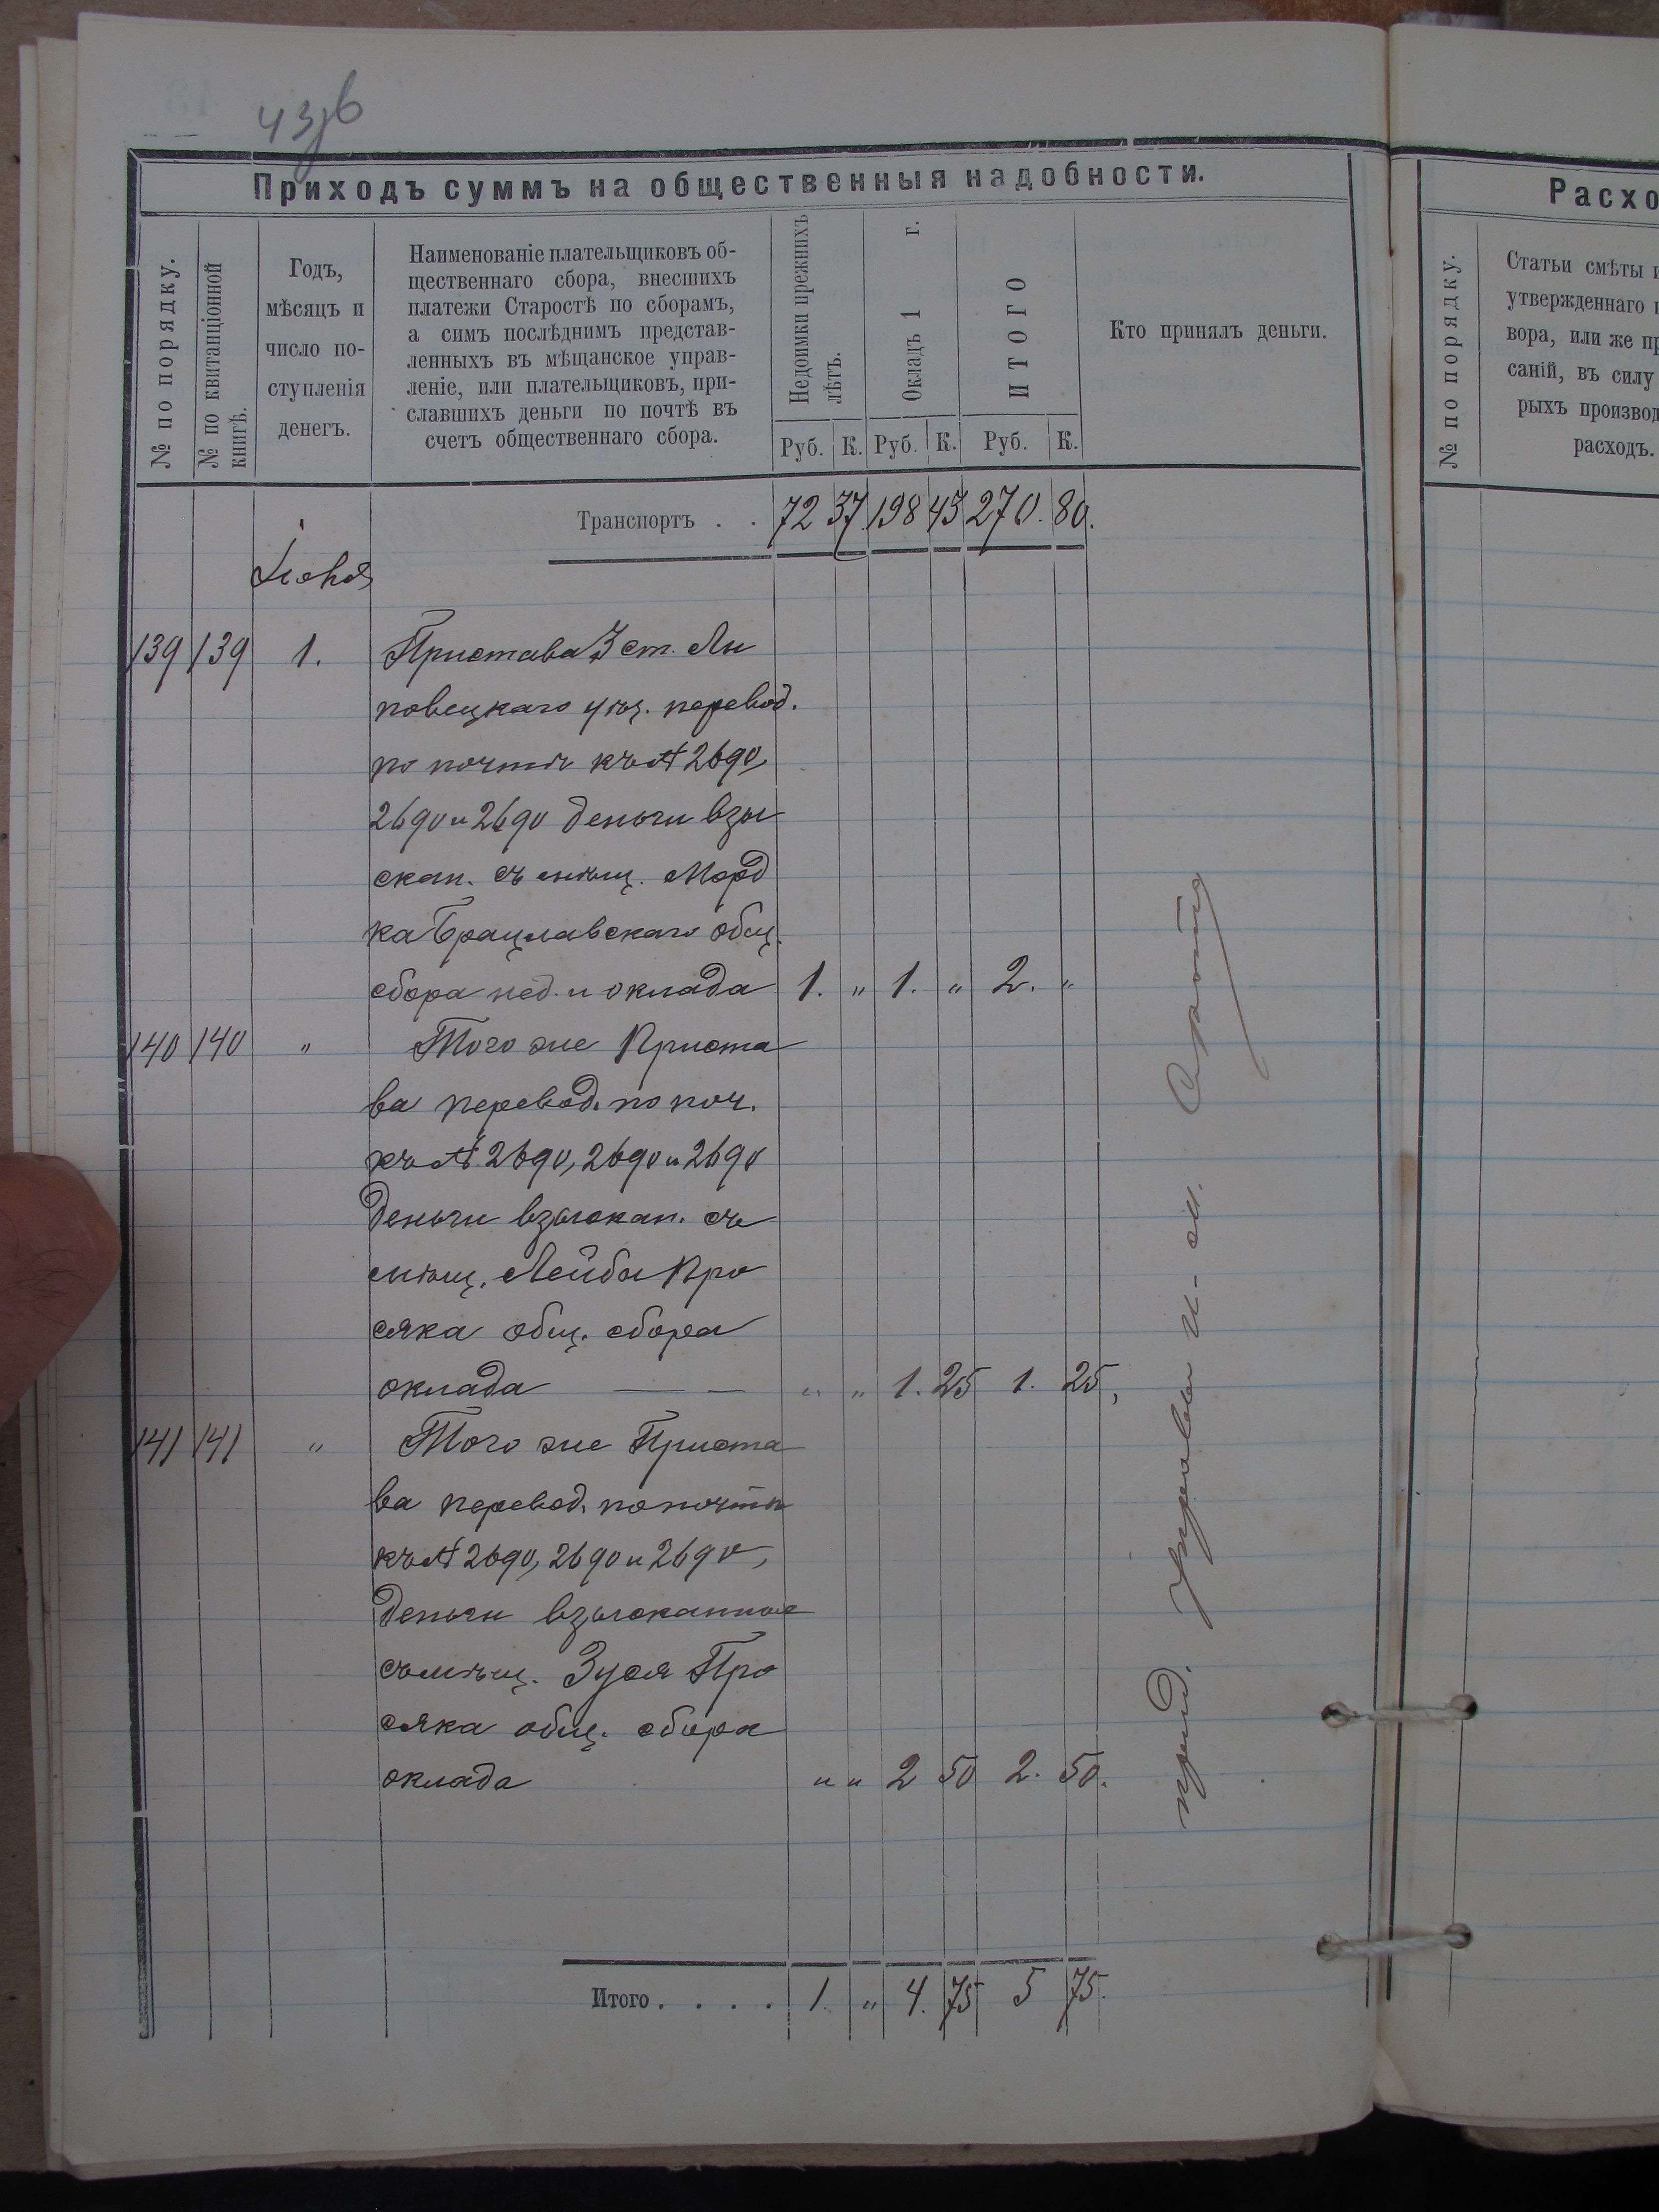 43 об
Приходъ суммъ на общественныя надобности.
№ по порядку.
№ по квитанціонной книгѣ.
Годъ,
мѣсяцъ и
число по-
ступленія
денегъ.
Наименованіе плательщиковъ об-
щественнаго сбора, внесшихъ
платежи Старостѣ по сборамъ,
а симъ послѣднимъ представ-
ленныхъ въ мѣщанское управ-
леніе, или плательщиковъ, при-
славшихъ деньги по почтѣ въ
счетъ общественнаго сбора.
Недоимки прежнихъ лѣтъ.
Окладъ 1 г.
ИТОГО
Руб. К. Руб. К. Руб. К.
Кто принялъ деньги.
Транспортъ . . 72 37 198 43 270. 80.
Іюня
139 139 1. Пристава 3 ст. Ли
повецкаго уѣз. перевод.
по почтѣ къ № 2690,
2690 и 2690 деньги взы
скан. съ мѣщ. Морд
ка Брацлавскаго общ.
сбора нед. и оклада 1. " 1. " 2. "
140 140 " Того же Приста
ва перевод. по поч.
къ № 2690, 2690 и 2690
деньги взыскан. съ
мѣщ. Лейбы Про
сяка общ. сбора
оклада — — " " 1. 25 1. 25,
141 141 " Того же Приста
ва перевод. по почтѣ
къ № 2690, 2690 и 2690,
деньги взысканные
съ мѣщ. Зуся Про
сяка общ. сбора
оклада " " 2 50 2. 50.
Итого . . . . 1. " 4. 75 5 75.
Управы
Расхо
№ по порядку.
Статьи смѣты и
утвержденнаго п
вора, или же пр
саній, въ силу
рыхъ производ
расходъ.